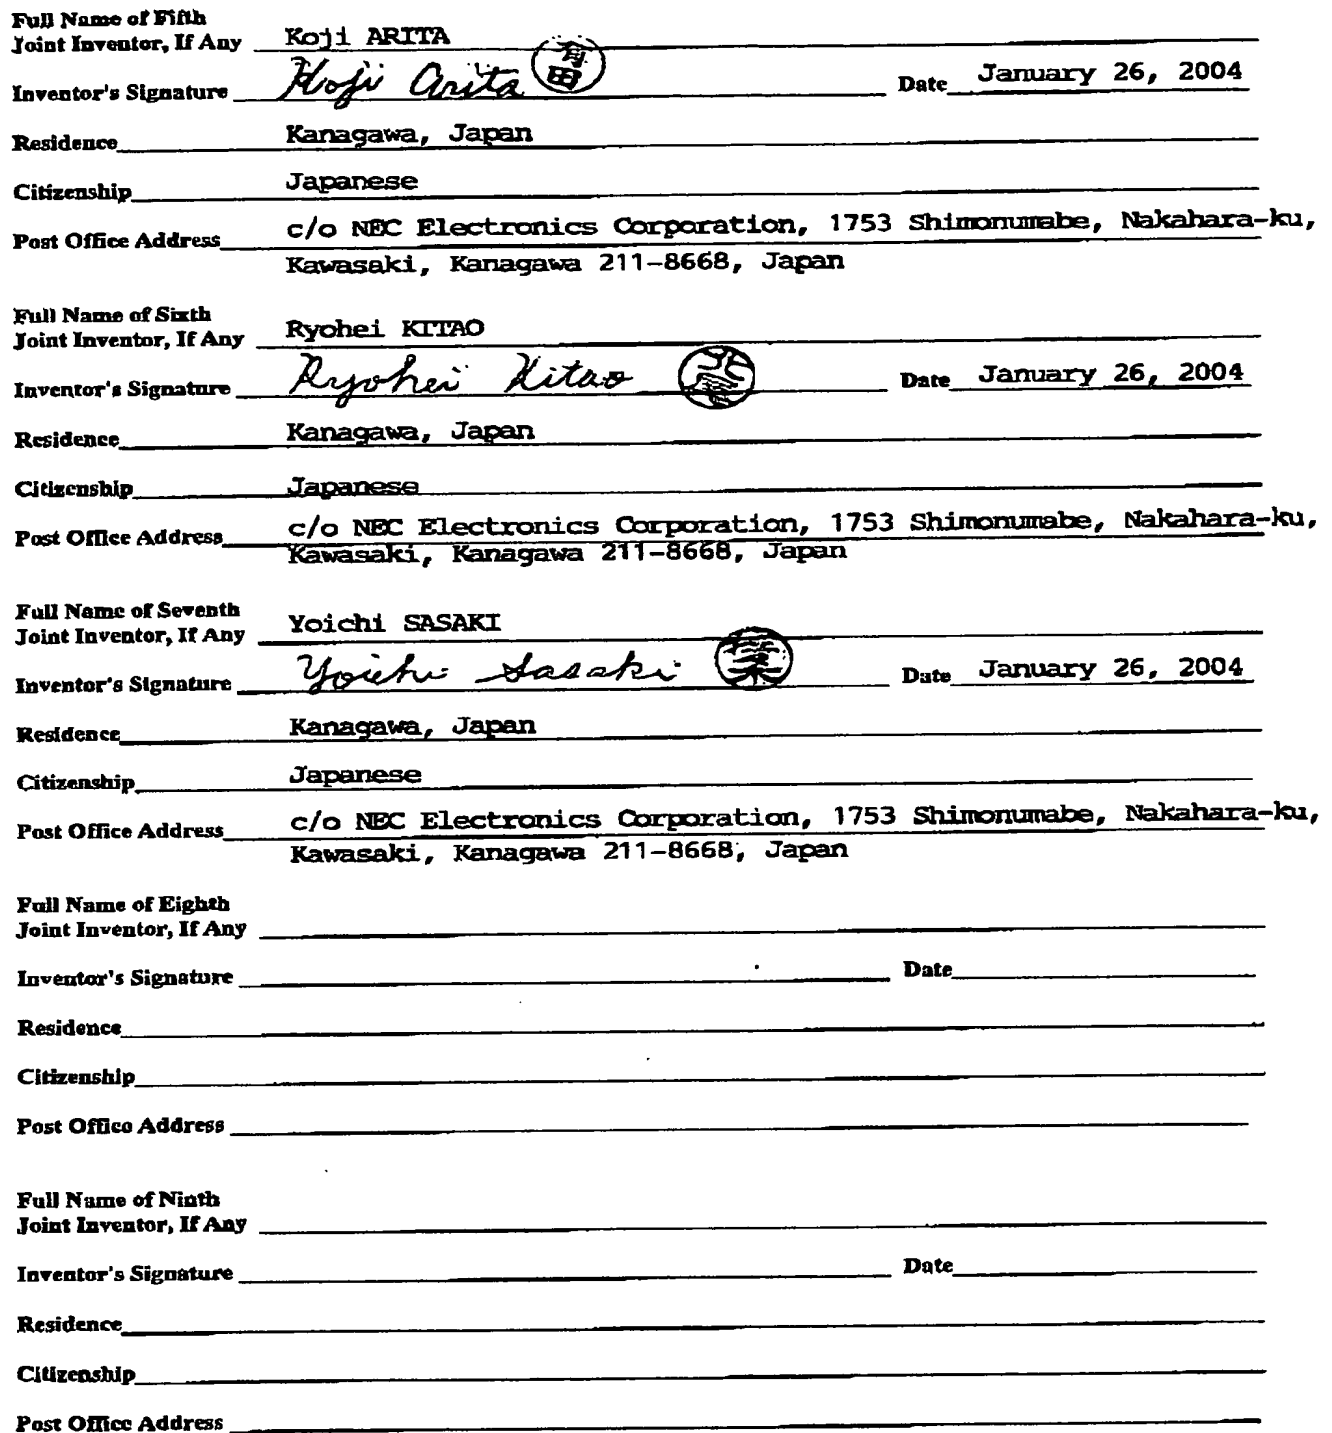 Full Name of Fifth
Joint Inventor, If Any Koji ARITA
Inventor's Signature Koji Arita 有田 Date January 26, 2004
Residence Kanagawa, Japan
Citizenship Japanese
Post Office Address c/o NEC Electronics Corporation, 1753 Shimonumabe, Nakahara-ku,
Kawasaki, Kanagawa 211-8668, Japan
Full Name of Sixth
Joint Inventor, If Any Ryohei KITAO
Inventor's Signature Ryohei Kitao Date January 26, 2004
Residence Kanagawa, Japan
Citizenship Japanese
Post Office Address c/o NEC Electronics Corporation, 1753 Shimonumabe, Nakahara-ku,
Kawasaki, Kanagawa 211-8668, Japan
Full Name of Seventh
Joint Inventor, If Any Yoichi SASAKI
Inventor's Signature Yoichi Sasaki Date January 26, 2004
Residence Kanagawa, Japan
Citizenship Japanese
Post Office Address c/o NEC Electronics Corporation, 1753 Shimonumabe, Nakahara-ku,
Kawasaki, Kanagawa 211-8668, Japan
Full Name of Eighth
Joint Inventor, If Any
Inventor's Signature Date
Residence
Citizenship
Post Office Address
Full Name of Ninth
Joint Inventor, If Any
Inventor's Signature Date
Residence
Citizenship
Post Office Address